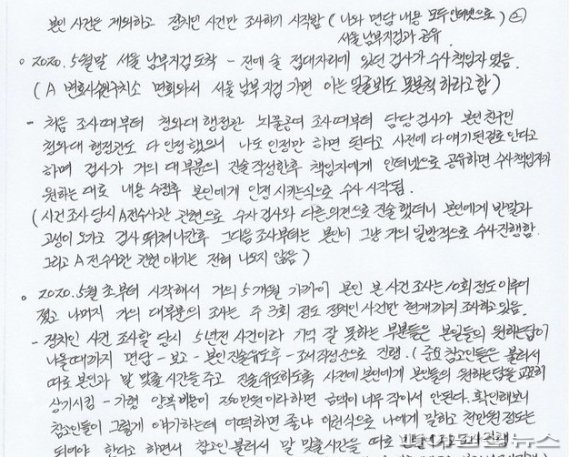 본인 사건은 제외하고 정치인 사건만 조사하기 시작함 (나와 면담 내용 모두 인터넷으로) ②
서울 남부지검과 공유
○ 2020. 5월말 서울 남부지검 도착 - 전에 술 접대자리에 있던 검사가 수사 책임자 였음.
(A 변호사 구치소 면회와서 서울 남부지검 가면 아는 얼굴봐도 못본척 하라고 함)
- 처음 조사 때부터 청와대 행정관 뇌물공여 조사때부터 담당 검사가 본인친구인
청와대 행정관도 다 인정했으니 나도 인정만 하면 된다고 사전에 다 얘기된걸로 안다고
하며 검사가 거의 대부분의 진술 작성한후 책임자에게 인터넷으로 공유하면 수사 책임자가
원하는 대로 내용 수정후 본인에게 인정 시키는식으로 수사 시작됨.
(사건 조사 당시 A전수사관 관련으로 수사 검사와 다른의견으로 진술 했더니 본인에게 반말과
고성이 오가고 검사 뛰쳐나간후 그다음 조사부터는 본인이 그냥 거의 일방적으로 수사진행함.
그리고 A 전수사관 관련 얘기는 전혀 나오지 않음)
○ 2020. 5월 초부터 시작해서 거의 5개월 가까이 본인 본 사건조사는 10회 정도 이루어
졌고 나머지 거의 대부분의 조사는 주 3회 정도 정치인 사건만 현재까지 조사하고 있음.
- 정치인 사건 조사할 당시 5년전 사건이라 기억 잘 못하는 부분들은 본인들의 원하는 답이
나올때까지 면담 - 보고 - 본인 진술유도후 - 조서 작성순으로 진행. (중요 참고인들은 불러서
따로 본인과 말 맞출 시간을 주고 진술유도하도록 사전에 본인에게 본인들의 원하는답을 교묘히
상기시킴 - 가령 양복 비용이 250만원 이라 하면 금액이 너무 작아서 안된다. 확인해보니
참고인들이 그렇게 얘기하는데 어떡하면 좋냐 이런식으로 나에게 말하고 천만원 정도는
되어야 한다고 하면서 참고인 불러서 말 맞출시간을 따로
파이낸셜뉴스